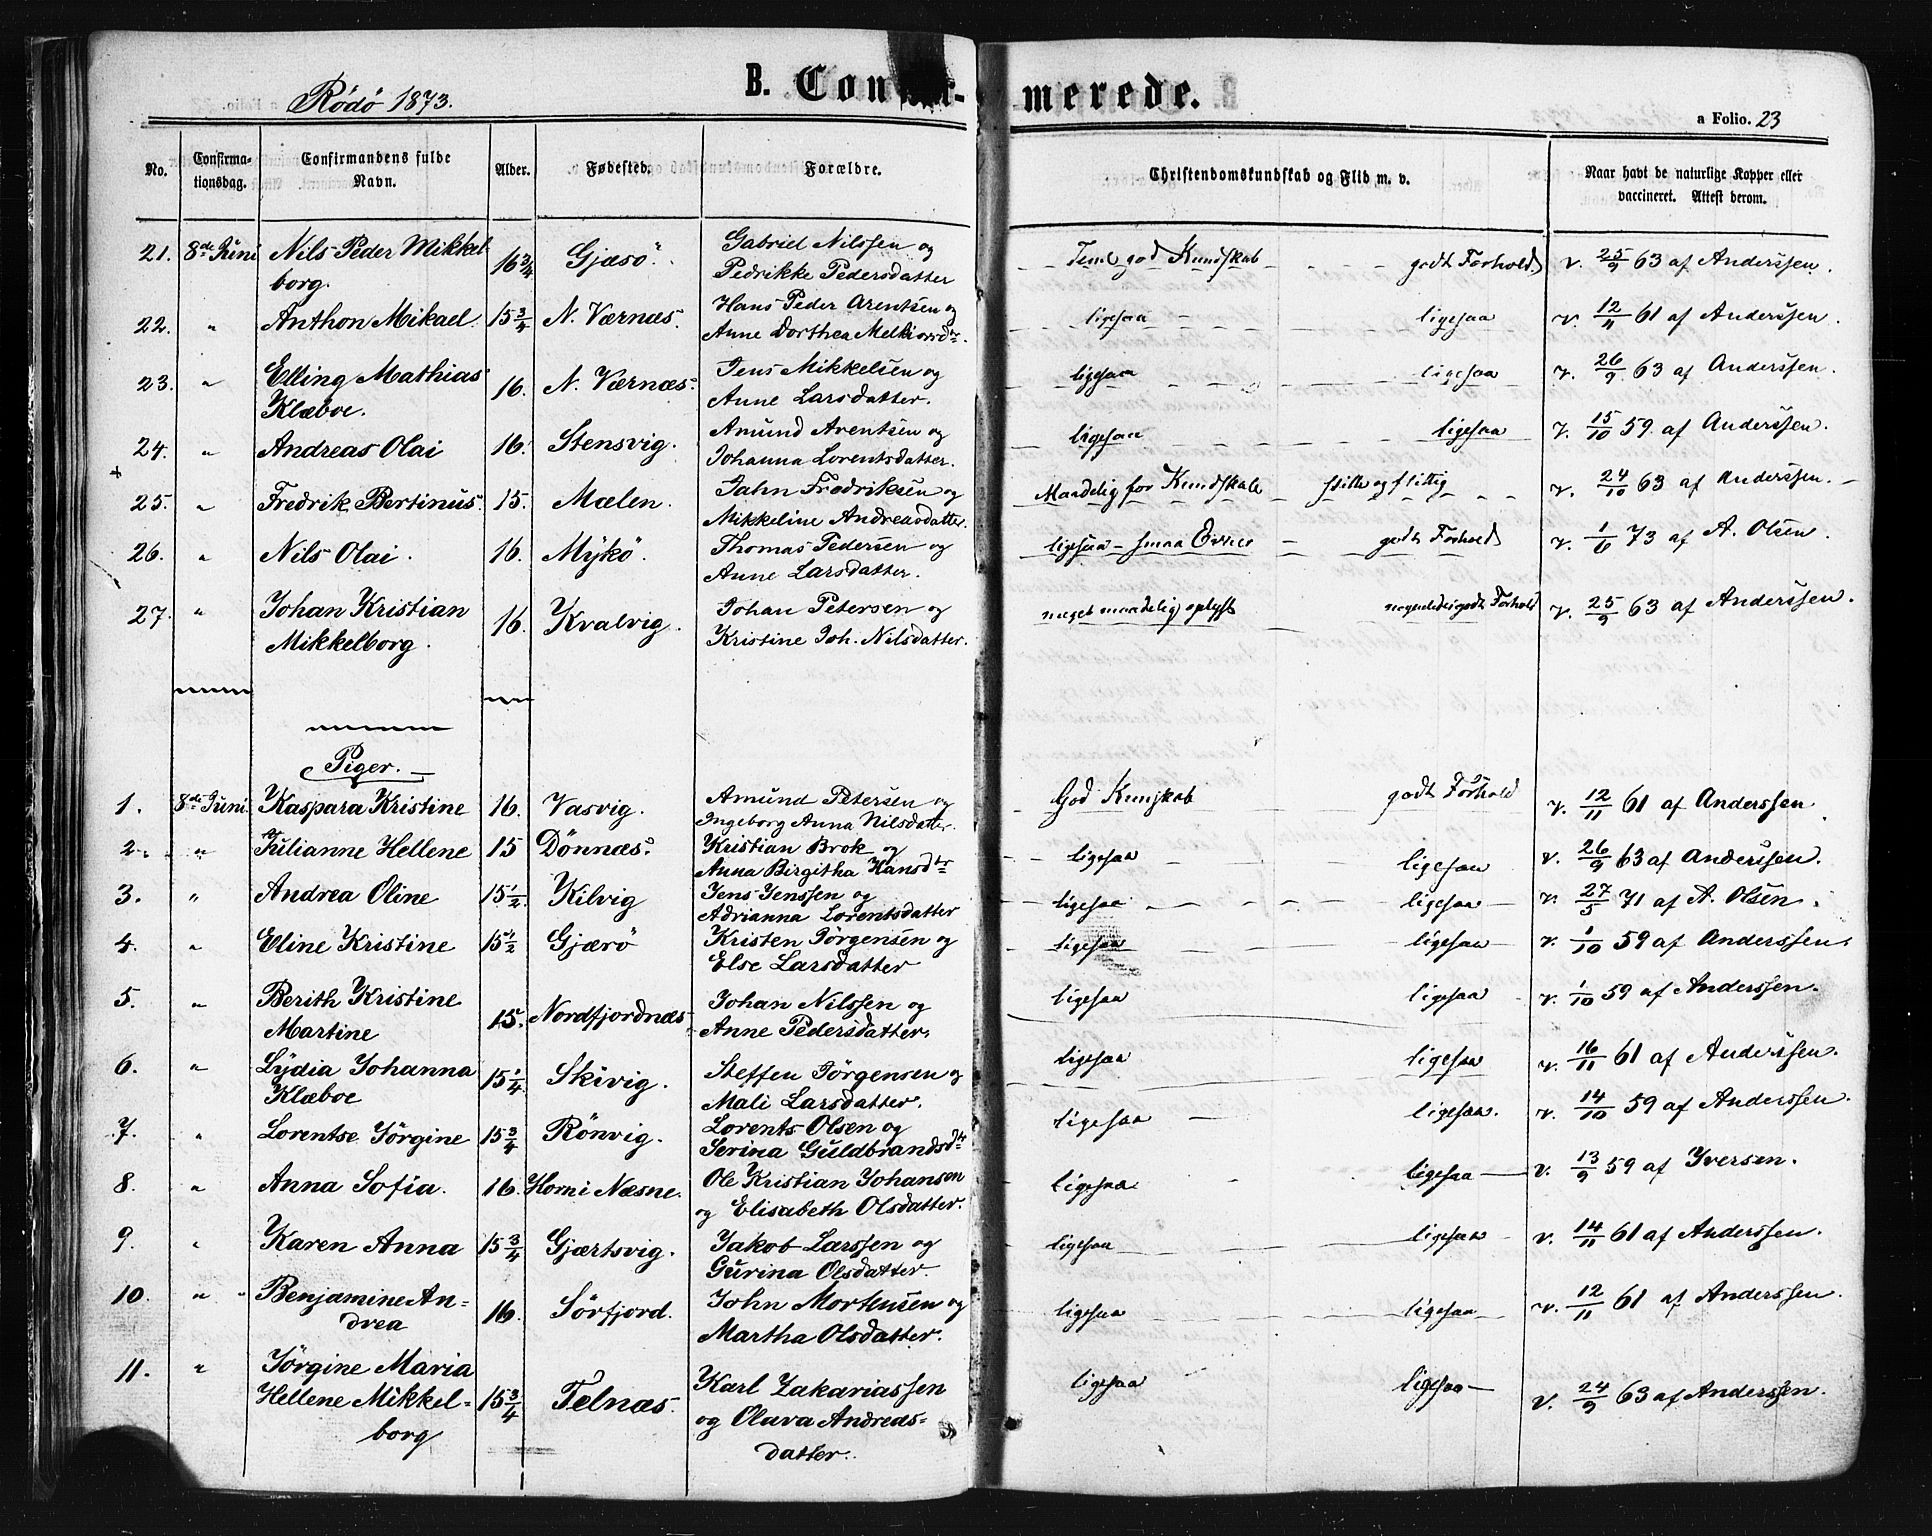 Rödö 1873.
B. Confir-merede.
a Folio. 23
No. Confirma-tionsdag. Confirmandens fulde Navn. Alder. Fødested. Forældre. Christendomskundskab og Flid m. v. Naar havt de naturlige Kopper eller vaccineret. Attest derom.
21. 8de Juni Nils Peder Mikkel 16 3/4 Gjæsö. Gabriel Nilssen og Teml. god Kundskab godt Forhold v. 25/9 63 af Anderssen.
borg. Pedrikke Pedersdatter
22. " Anthon Mikael. 15 3/4 N. Værnæs. Hans Peder Arentsen og ligesaa ligesaa v. 12/11 61 af Anderssen.
Anne Dorthea Melkiorsdtr.
23. " Elling Mathias 16. N. Værnæs. Jens Mikkelsen og ligesaa ligesaa v. 26/9 63 af Anderssen.
Klæboe. Anne Larsdatter.
24. " Andreas Olai 16. Stensvig. Amund Arentsen og ligesaa ligesaa v. 15/10 59. af Anderssen.
Johanna Lorentsdatter.
25. " Fredrik Bertinus. 15. Mælen. Jahn Fredriksen og Maadelig for Kundskab stille og flittig v. 24/10 63 af Anderssen.
Mikkeline Andreasdatter.
26. " Nils Olai. 16. Mykö. Thomas Pedersen og ligesaa - smaa Evner godt Forhold v. 1/6 73 af A. Olsen.
Anne Larsdatter.
27. " Johan Kristian 16. Kvalvig. Johan Petersen og meget maadelig oplyst nogenledes godt Forhold v. 25/9 63 af Anderssen.
Mikkelborg. Kristine Joh. Nilsdatter.
Piger.
1. 8de Juni Kaspara Kristine 16. Vasvig. Amund Petersen og God Kunskab godt Forhold v. 12/11 61 af Anderssen
Ingeborg Anna Nilsdatter.
2. " Julianne Hellene 15 Dönnæs. Kristian Brok og ligesaa ligesaa v. 26/9 63 af Anderssen.
Anna Birgitha Hansdtr
3. " Andrea Oline 15 1/2 Kilvig Jens Jenssen og ligesaa ligesaa v. 27/5 71 af A. Olsen.
Adrianna Lorentsdatter
4. " Eline Kristine 15 1/2 Gjærö Kristen Jörgensen og ligesaa ligesaa v. 1/10 59 af Anderssen.
Else Larsdatter
5. " Berith Kristine 15. Nordfjordnæs Johan Nilssen og ligesaa ligesaa v. 1/10 59 af Anderssen.
Martine Anne Pedersdatter.
6. " Lydia Johanna 15 1/4 Skivig. Steffen Jörgensen og ligesaa ligesaa v. 16/11 61 af Anderssen.
Klæboe Mali Larsdatter.
7. " Lorentse Jörgine 15 3/4 Rönvig. Lorents Olsen og ligesaa ligesaa. v. 14/10 59 af Anderssen.
Serina Guldbrandsdtr
8. " Anna Sofia. 16. Horni Næsne. Ole Kristian Johansen ligesaa ligesaa v. 13/9 59 af Iversen.
og Elisabeth Olsdatter.
9. " Karen Anna 15 3/4 Gjærtsvig. Jakob Larssen og ligesaa ligesaa v. 14/11 61 af Anderssen.
Gurina Olsdatter.
10. " Benjamine An- 16. Sörfjord. John Mortensen og ligesaa ligesaa v. 12/11 61 af Anderssen.
drea Martha Olsdatter.
11. " Jörgine Maria
Hellene Mikkel- 15 3/4 Telnæs. Karl Zakariassen ligesaa ligesaa v. 24/9 63 af Anderssen.
borg og Olava Andreas-
datter.